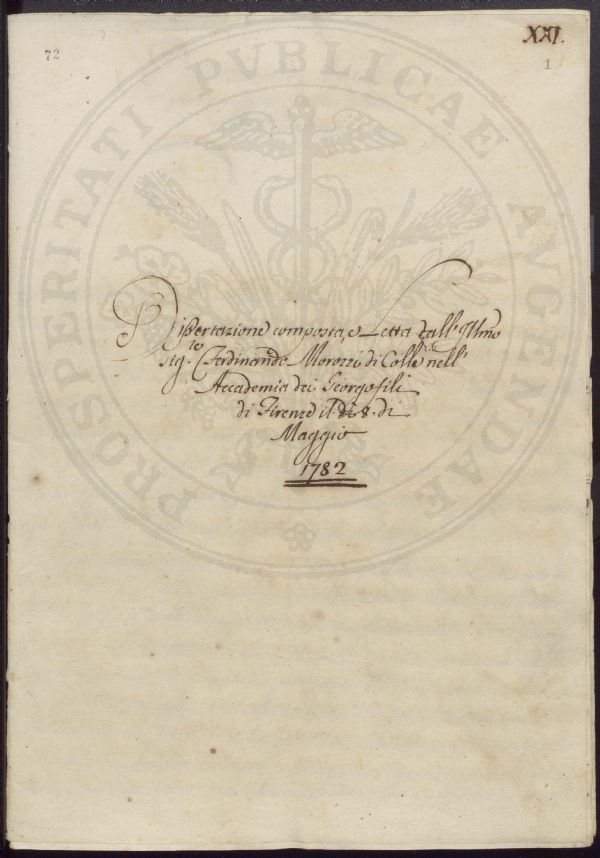 XXI.
72
1
PROSPERITATI PVBLICAE AVGENDAE
Dissertazione composta, e Letta dall' Illmo
Sig.re Ferdinando Morozzi di Colle nell'
Accademia dei Georgofili
di Firenze il dì 8. di
Maggio
1782